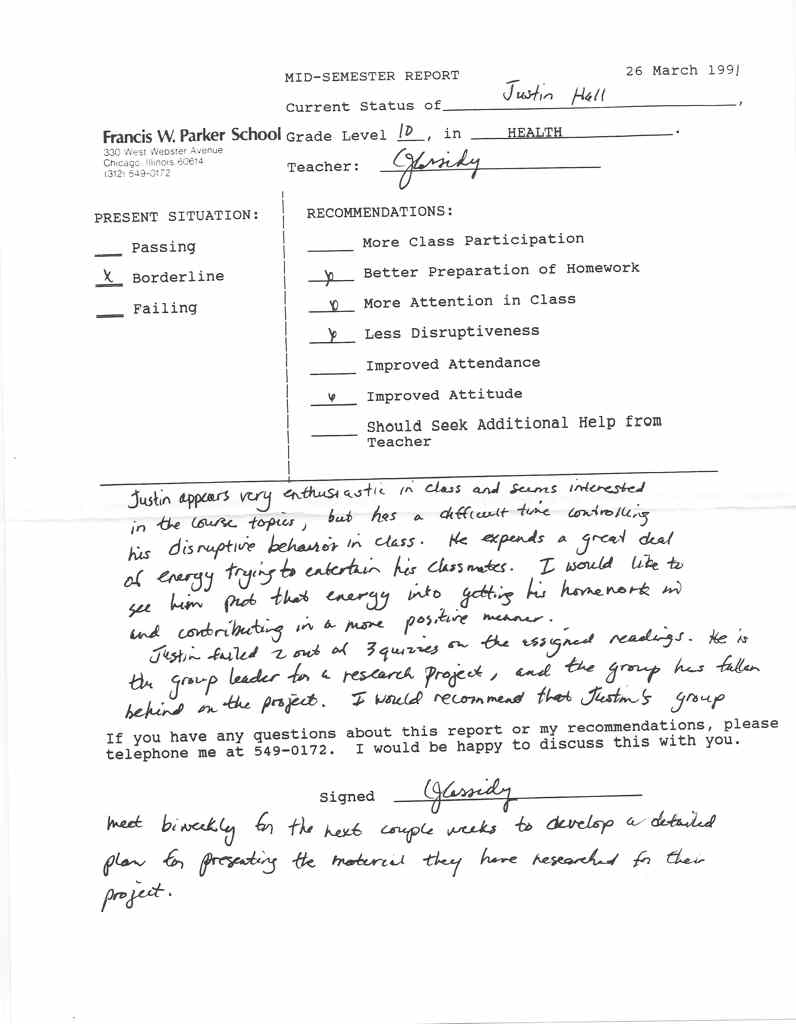 MID-SEMESTER REPORT 26 March 1991
Current Status of Justin Hall,
Francis W. Parker School
330 West Webster Avenue
Chicago, Illinois 60614
(312) 549-0172
Grade Level 10, in HEALTH.
Teacher:
PRESENT SITUATION:
Passing
X Borderline
Failing
RECOMMENDATIONS:
More Class Participation
Better Preparation of Homework
More Attention in Class
Less Disruptiveness
Improved Attendance
Improved Attitude
Should Seek Additional Help from
Teacher
Justin appears very enthusiastic in class and seems interested
in the course topics, but has a difficult time controlling
his disruptive behavior in class. He expends a great deal
of energy trying to entertain his classmates. I would like to
see him put that energy into getting his homework in
and contributing in a more positive manner.
Justin failed 2 out of 3 quizzes on the assigned readings. He is
the group leader for a research project, and the group has fallen
behind on the project. I would recommend that Justin's group
If you have any questions about this report or my recommendations, please
telephone me at 549-0172. I would be happy to discuss this with you.
Signed
meet biweekly for the next couple weeks to develop a detailed
plan for presenting the material they have researched for their
project.